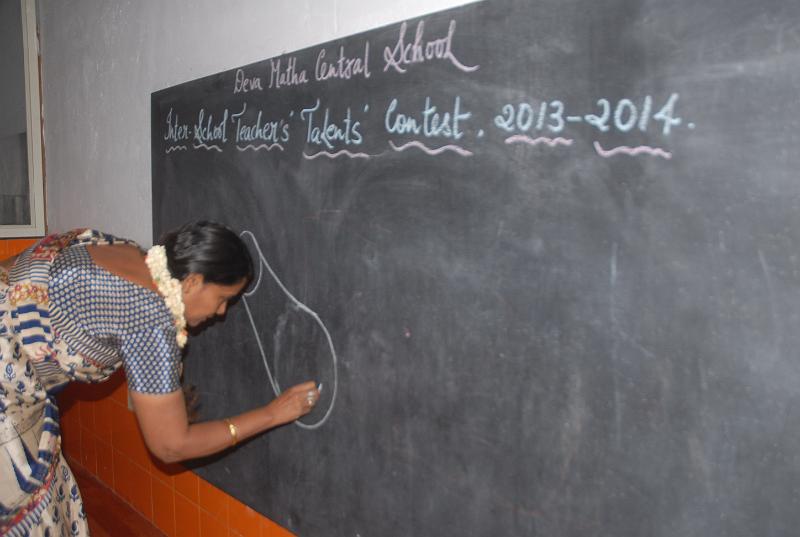 Deva Matha Central School
Inter-School Teacher's' Talents' Contest. 2013-2014.